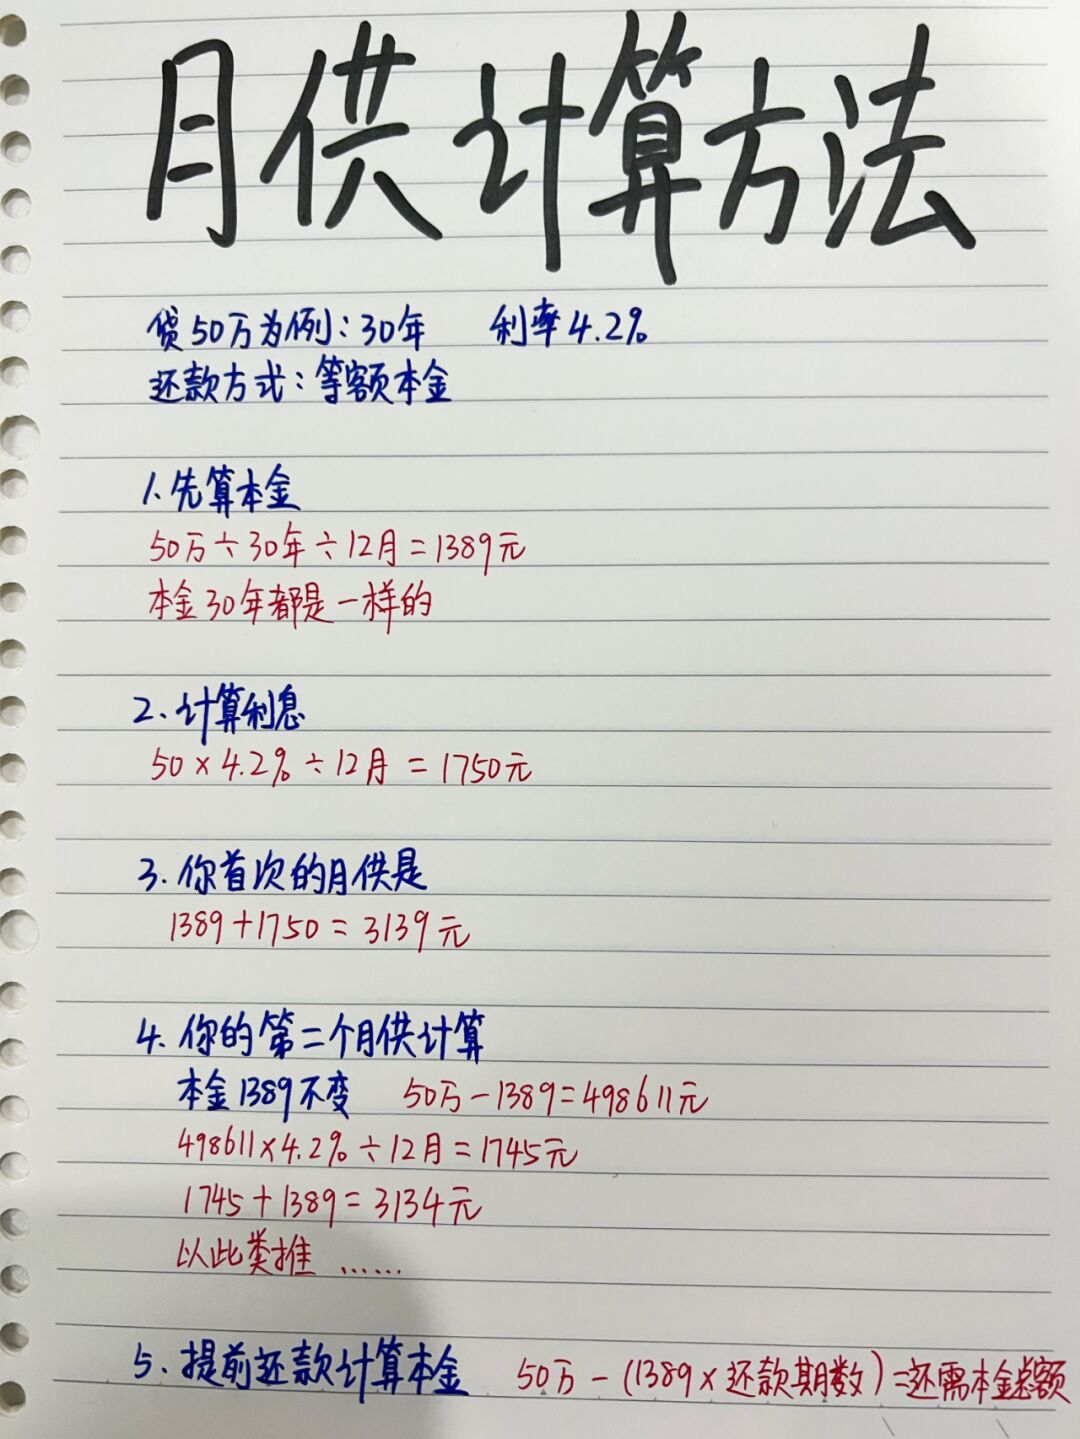 月供计算方法
贷50万为例:30年 利率4.2%
还款方式:等额本金
1.先算本金
50万÷30年÷12月=1389元
本金30年都是一样的
2.计算利息
50×4.2%÷12月=1750元
3.你首次的月供是
1389+1750=3139元
4.你的第二个月供计算
本金1389不变 50万-1389=498611元
498611×4.2%÷12月=1745元
1745+1389=3134元
以此类推……
5.提前还款计算本金 50万-(1389×还款期数)=还需本金总额